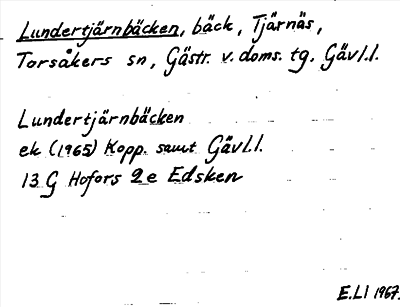 Lundertjärnbäcken, bäck, Tjärnäs,
Torsåkers sn, Gästr. v. doms. tg. Gävl.l.
Lundertjärnbäcken
ek (1965) Kopp. samt Gävl.l.
13 G Hofors 2 e Edsken
E.Ll 1967.